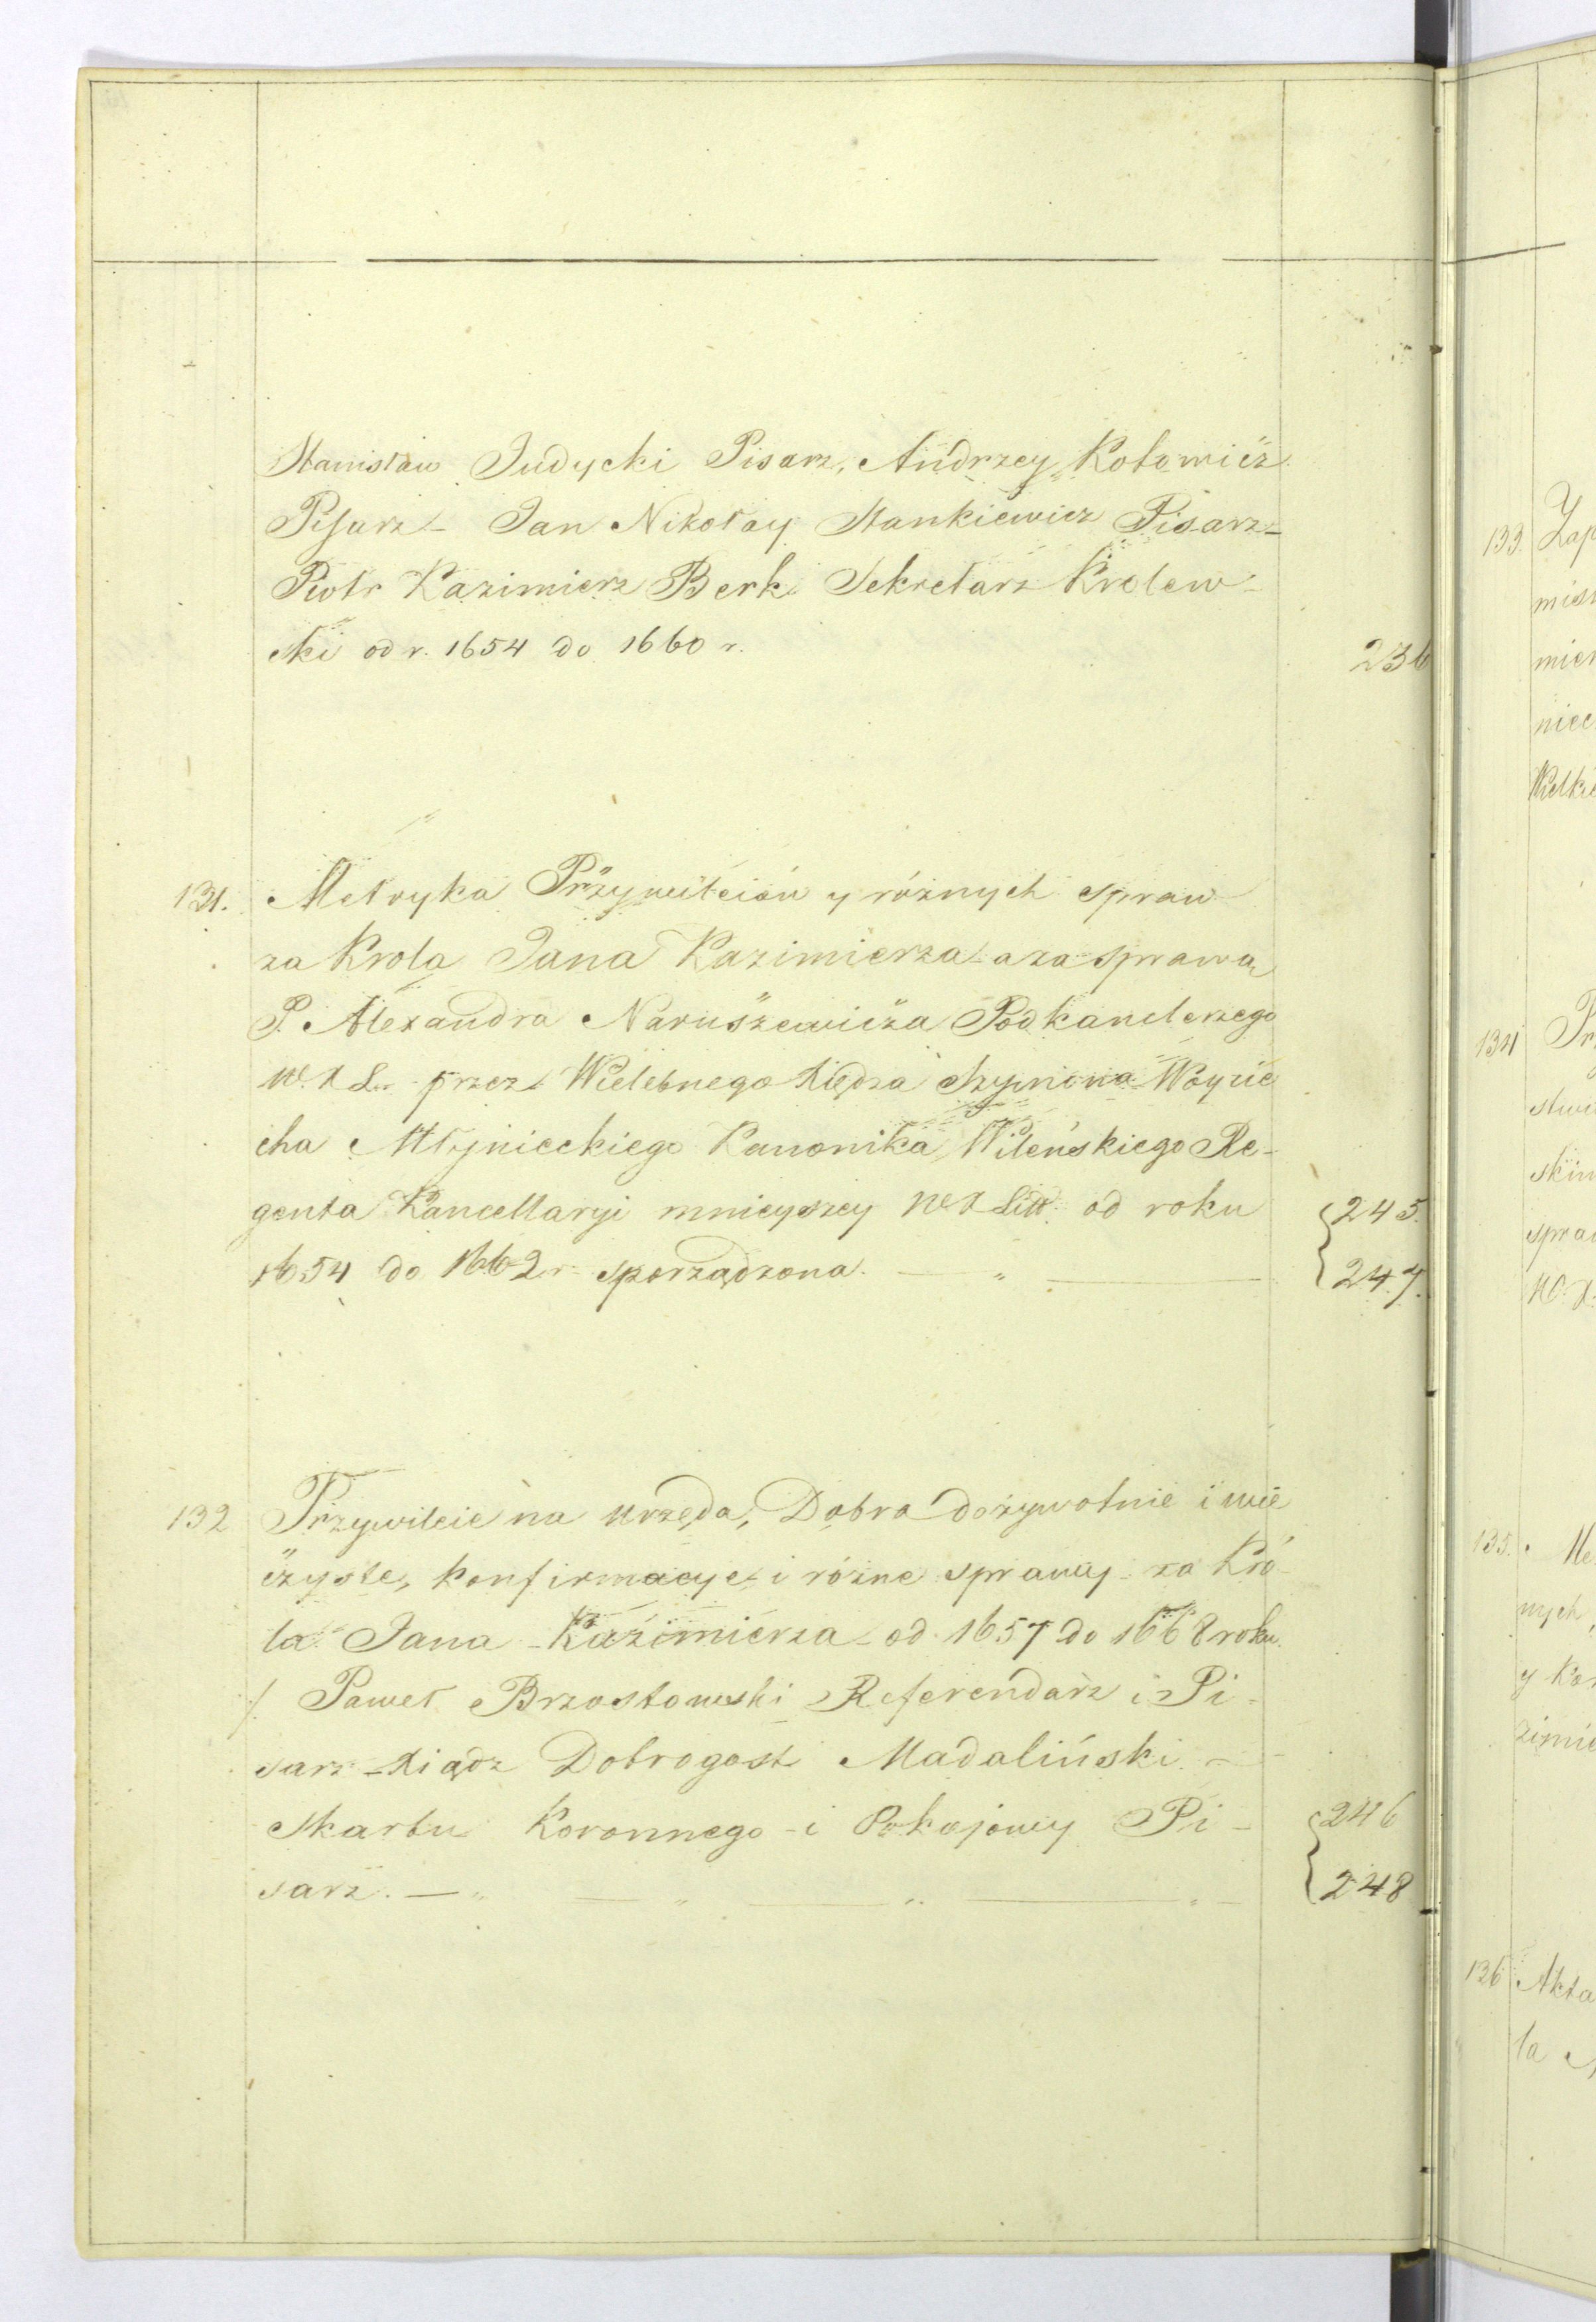 Stanisław Judycki Pisarz, Andrzey Kotowicz
Pisarz – Jan Nikołay Stankiewicz Pisarz –
Piotr Kazimierz Berk Sekretarz Krolew-
ski od r. 1654 do 1660 r. 236
131. Metryka Przywileiów y różnych spraw
za Krola Jana Kazimierza a za sprawą
P. Alexandra Naruszewicza Podkanclerzego
W. X L. przez Wielebnego Xiędza Szymona Woycie
cha Młynieckiego Kanonika Wileńskiego Re-
genta Kancellaryi mnieyszey W X Litt. od roku {245.
1654 do 1662 r sporządzona. — „ — {247.
132 Przywileie na urzęda, Dobra dożywotnie i wie
czyste, konfirmacye i różne sprawy za Kró-
la Jana Kazimierza od 1657 do 1668 roku.
/. Paweł Brzostowski Referendarz i Pi-
sarz – Xiądz Dobrogost Madaliński –
Skarbu Koronnego – i Pokojowy Pi- {246
sarz. — „ — „ — „ — „ — {248
133. Zap
mis
mier
niec
Wielki
134 Pr
stwi
skim
spra
W. X.
135. Me
nych,
y Kon
zimie
136 Akta
la